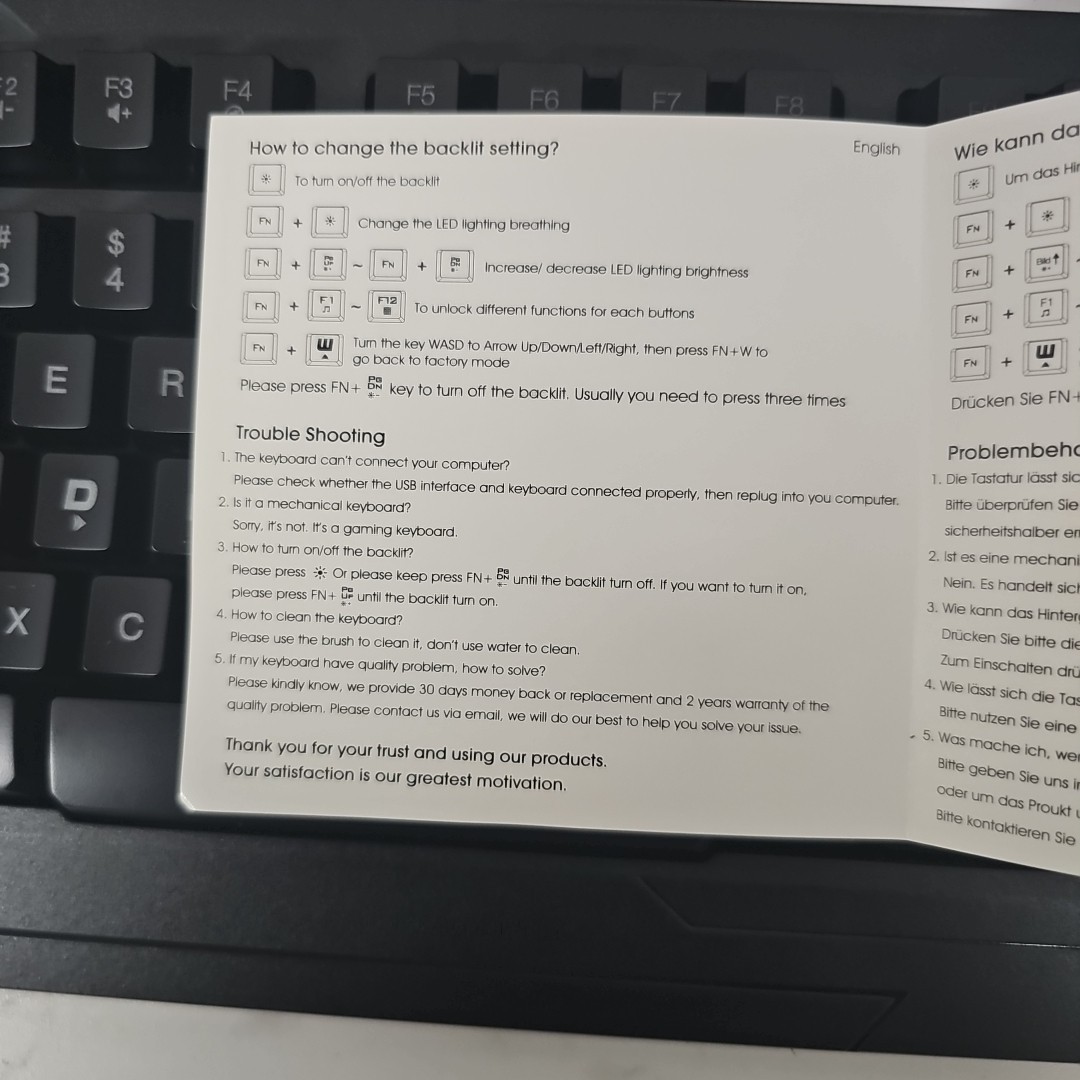 F2
F3
F4
F5
F6
F7
F8
#
3
$
4
E
R
D
X
C
How to change the backlit setting?
English
To turn on/off the backlit
FN + Change the LED lighting breathing
FN + PG UP ~ FN + PG DN Increase/ decrease LED lighting brightness
FN + F1 ~ F12 To unlock different functions for each buttons
FN + W Turn the key WASD to Arrow Up/Down/Left/Right, then press FN+W to
go back to factory mode
Please press FN+ PG DN key to turn off the backlit. Usually you need to press three times
Trouble Shooting
1. The keyboard can't connect your computer?
Please check whether the USB interface and keyboard connected properly, then replug into you computer.
2. Is it a mechanical keyboard?
Sorry, it's not. It's a gaming keyboard.
3. How to turn on/off the backlit?
Please press Or please keep press FN+ PG DN until the backlit turn off. If you want to turn it on,
please press FN+ PG UP until the backlit turn on.
4. How to clean the keyboard?
Please use the brush to clean it, don't use water to clean.
5. If my keyboard have quality problem, how to solve?
Please kindly know, we provide 30 days money back or replacement and 2 years warranty of the
quality problem. Please contact us via email, we will do our best to help you solve your issue.
Thank you for your trust and using our products.
Your satisfaction is our greatest motivation.
Wie kann da
Um das Hin
FN +
FN + Bild
FN + F1
FN + W
Drücken Sie FN+
Problembeh
1. Die Tastatur lässt sic
Bitte überprüfen Sie
sicherheitshalber er
2. Ist es eine mechani
Nein. Es handelt sich
3. Wie kann das Hinter
Drücken Sie bitte die
Zum Einschalten drü
4. Wie lässt sich die Tas
Bitte nutzen Sie eine
5. Was mache ich, we
Bitte geben Sie uns i
oder um das Proukt
Bitte kontaktieren Sie